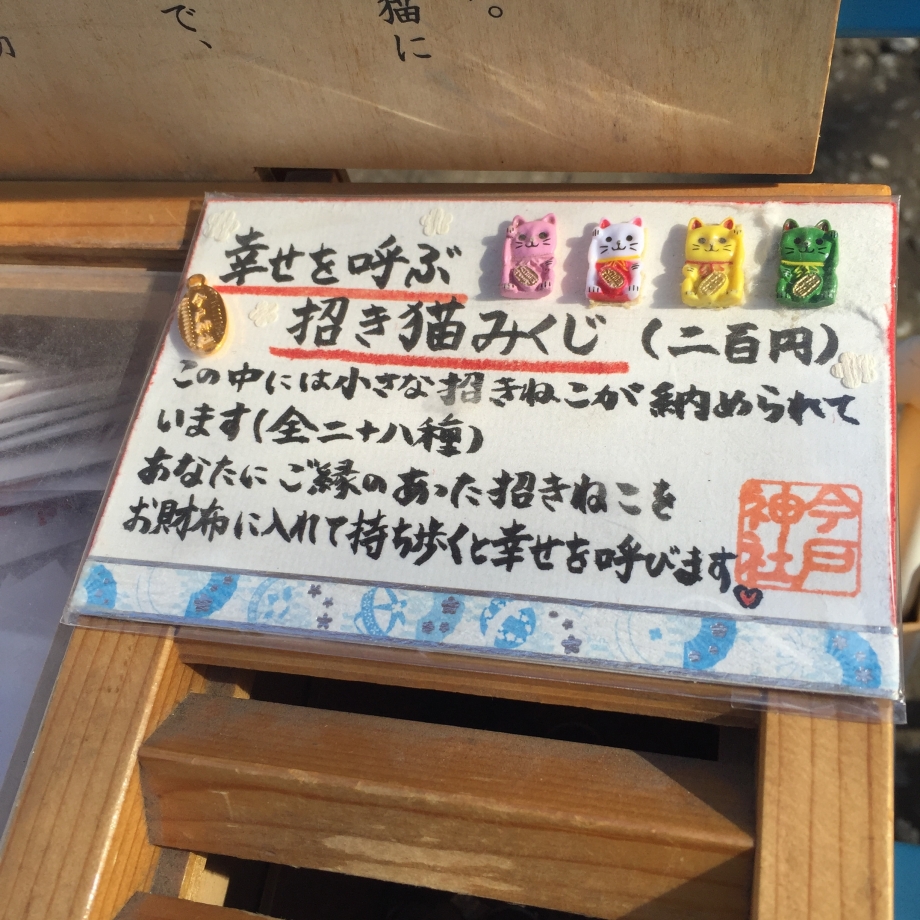 猫に
で、
幸せを呼ぶ
招き猫みくじ(二百円)
この中には小さな招きねこが納められて
います(全二十八種)
あなたにご縁のあった招きねこを
お財布に入れて持ち歩くと幸せを呼びます
今戸
神社